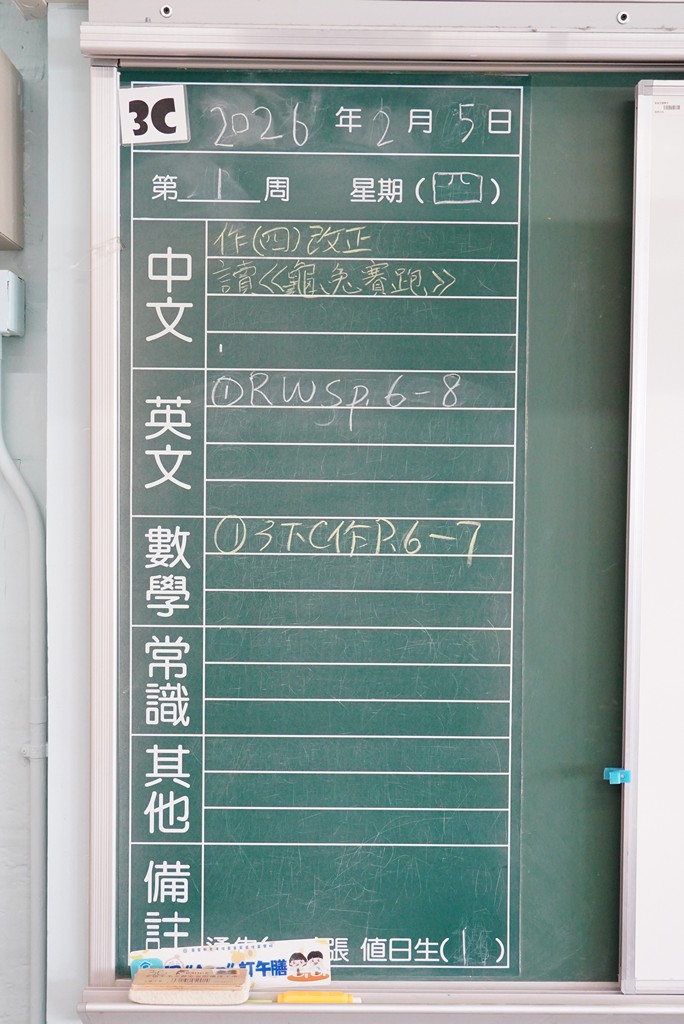 3C
2026年2月5日
第1周 星期(四)
中文
作(四)改正
讀《龜兔賽跑》
英文
①RWS p.6-8
數學
①3下C作P.6-7
常識
其他
備註
張 值日生(1)
訂午膳